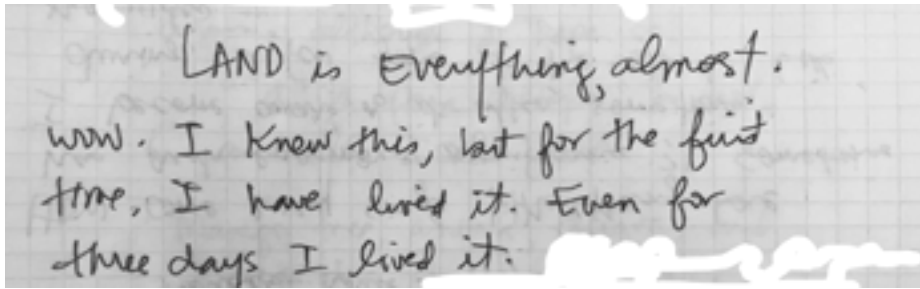 LAND is Everything, almost.
wow. I knew this, but for the first
time, I have lived it. Even for
three days I lived it.